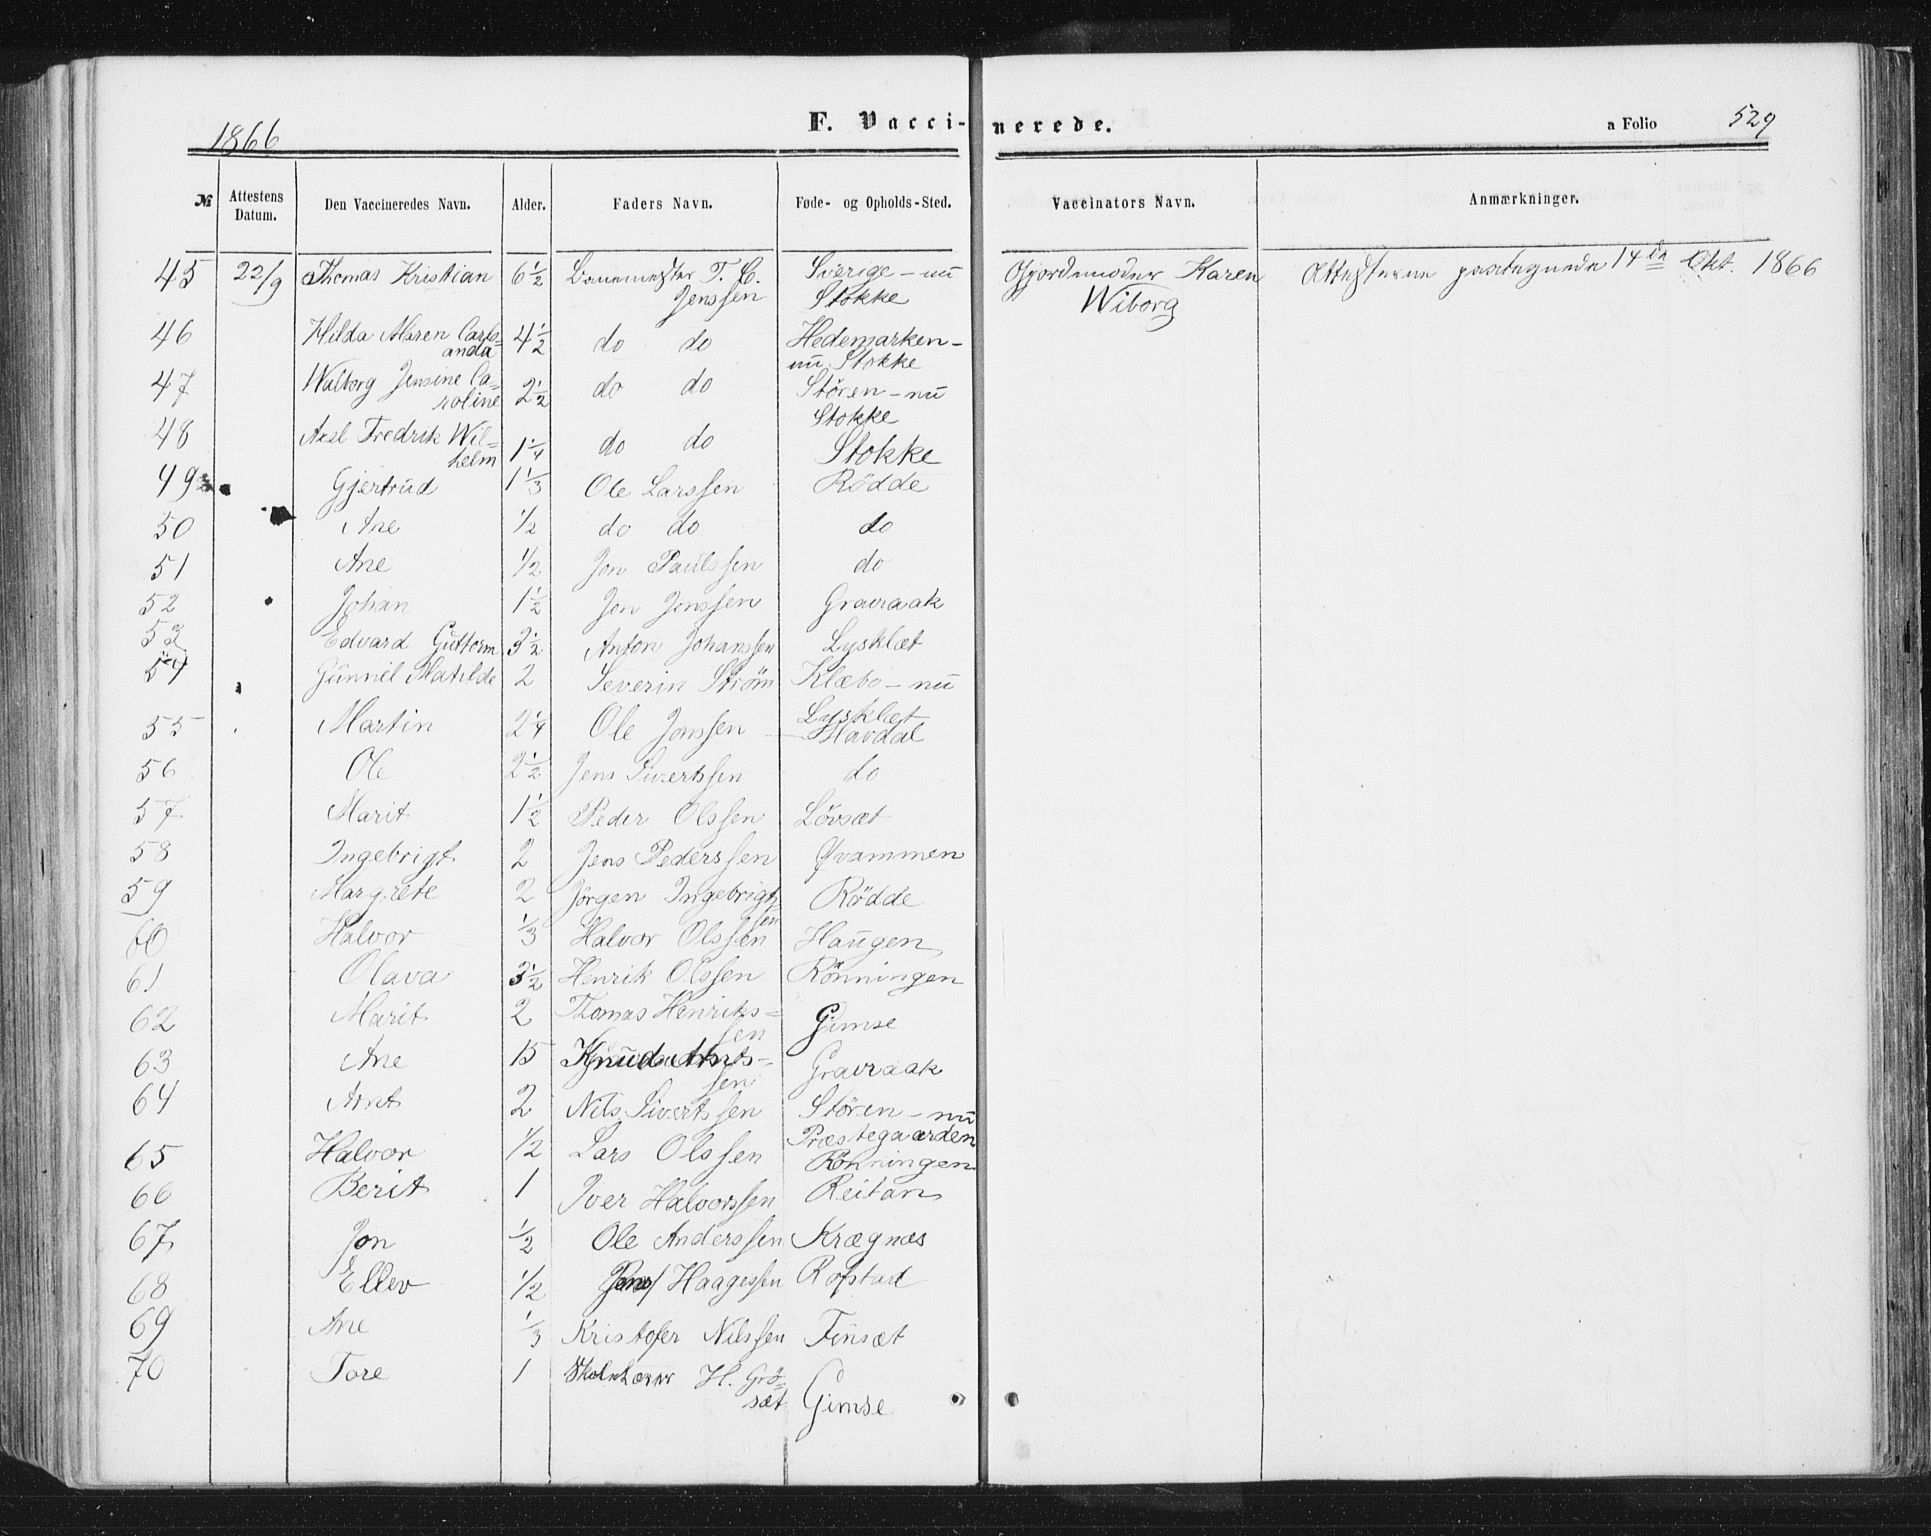 1866
F. Vaccinerede.
a Folio 529
№ Attestens Datum. Den Vaccineredes Navn. Alder. Faders Navn. Føde- og Opholds-Sted. Vaccinators Navn. Anmærkninger.
45 22/9 Thomas Kristian 6 1/2 Banemester T. C. Jenssen Sverige - nu Stokke Gjordemoder Karen Wiborg Attesterne paategnede 14de Okt. 1866
46 Hilda Maren Carloanda 4 1/2 do do Hedemarken - nu Stokke
47 Walborg Jensine Caroline 2 1/2 do do Stören - nu Stokke
48 Axel Fredrik Wilhelm 1 1/4 do do Stokke
49 Gjertrud 1 1/3 Ole Larssen Rödde
50 Ane 1/2 do do do
51 Ane 1/2 Jon Paulssen do
52 Johan 1 1/2 Jon Jonssen Gravraak
53 Edvard Guttorm 3 1/2 Anton Johanssen Lysklæt
54 Gunnil Matilde 2 Severin Strøm Klæbo - nu Lysklæt
55 Martin 2 1/4 Ole Jonssen Havdal
56 Ole 2 1/2 Jens Sivertssen do
57 Marit 1 1/2 Peder Olssen Lövsæt
58 Ingebrigt 2 Jens Pederssen Qvammen
59 Margrete 2 Jörgen Ingebrigtssen Rödde
60 Halvor 1/3 Halvor Olssen Haugen
61 Olava 3 1/2 Henrik Olssen Rönningen
62 Marit 2 Thomas Henrikssen Gimse
63 Ane 15 Knud Arntssen Gravraak
64 Arnt 2 Nils Sivertssen Stören - nu Præstegaarden
65 Halvor 1/2 Lars Olssen Rönningen
66 Berit 1 Iver Halvorssen Reitan
67 Jon 1/2 Ole Anderssen Krægnæs
68 Ellev 1/2 Haagessen Rofstad
69 Ane 1/3 Kristofer Nilssen Finsæt
70 Tore 1 Skolelærer H. Grösæt Gimse